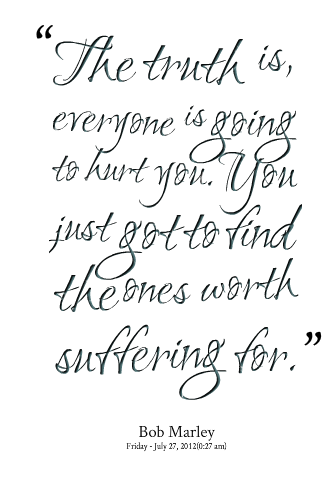 “The truth is,
everyone is going
to hurt you. You
just got to find
the ones worth
suffering for.”
Bob Marley
Friday - July 27, 2012(0:27 am)